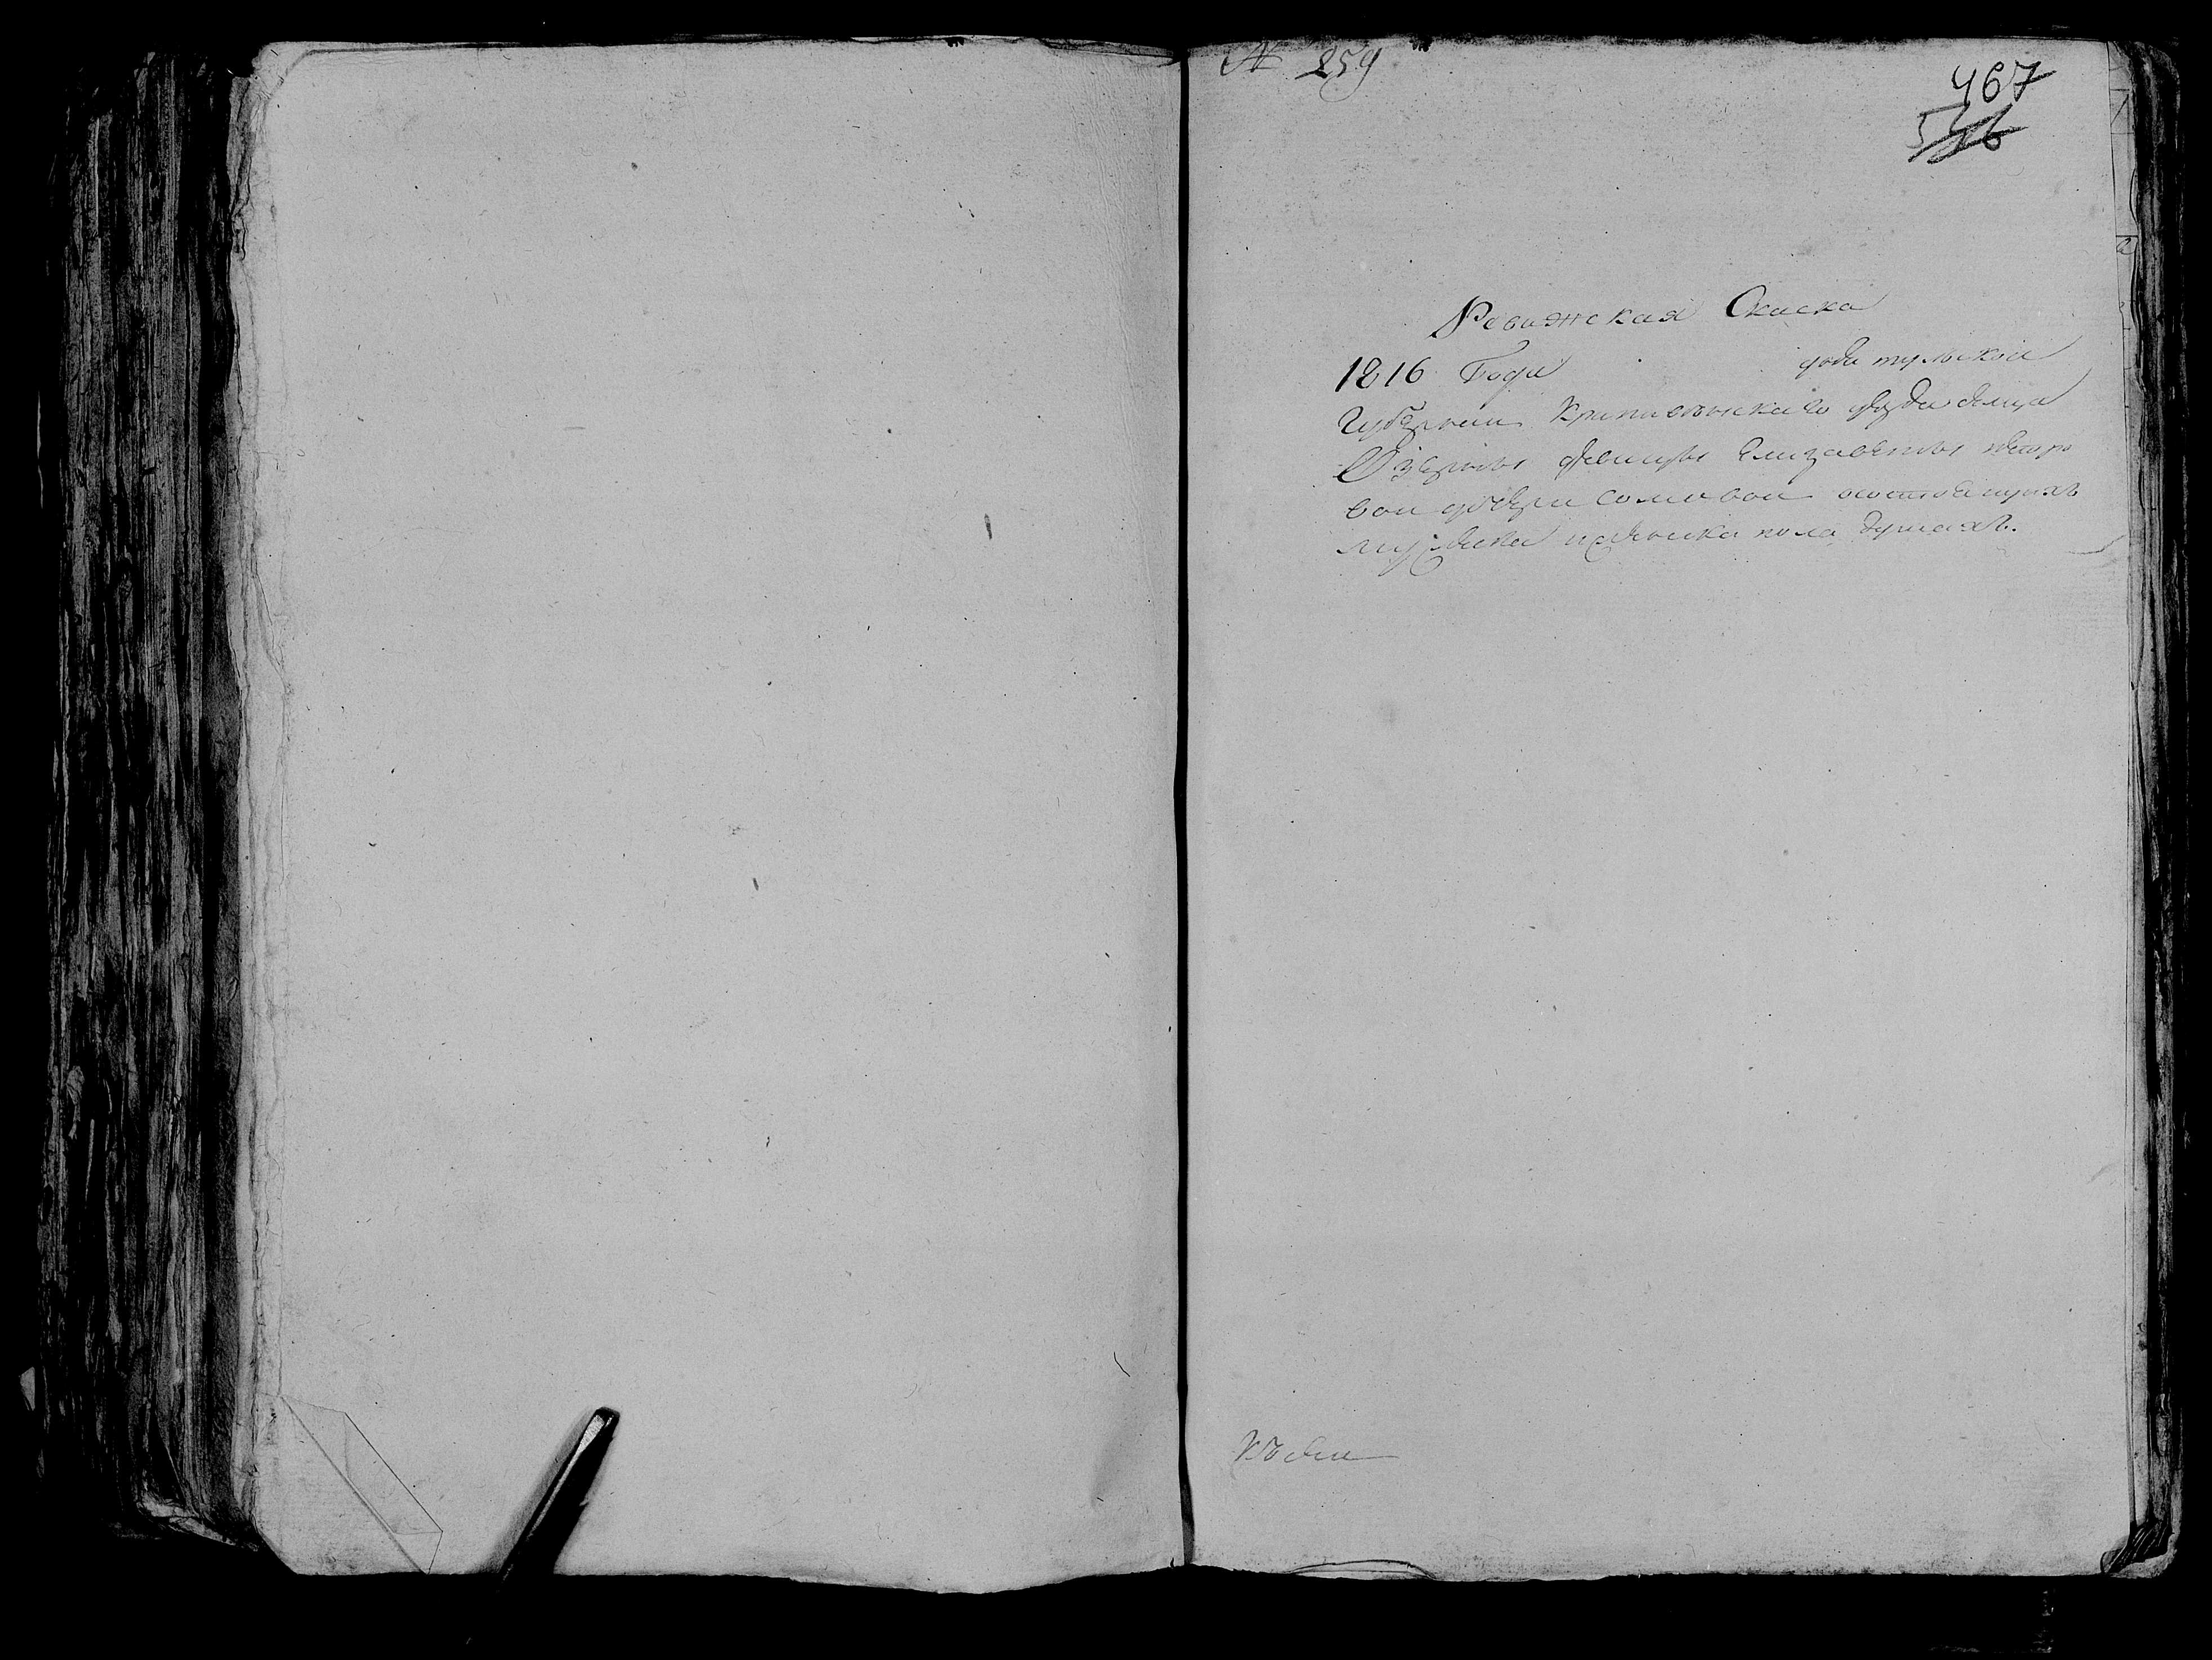 № 259
467
Ревижская Скаска
1816 Года года тульской
Губернии Крапивенскаго уезда сельца
Озерокъ девицы Елизаветы петро
вой дочери сомовой осостоящихъ
мужеска и женска пола душахъ.